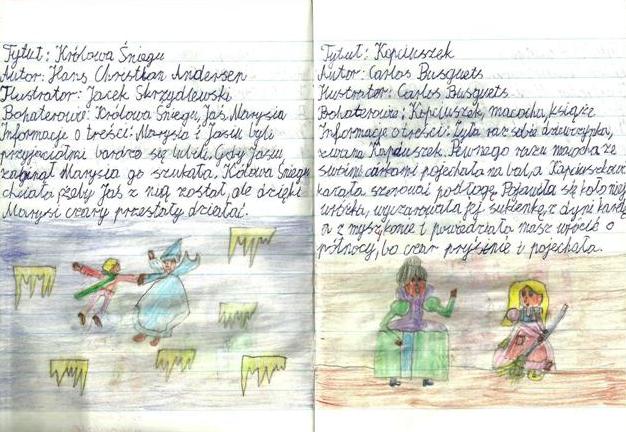 Tytuł: Królowa Śniegu
Autor: Hans Christian Andersen
Ilustrator: Jacek Skrzydlewski
Bohaterowie: Królowa Śniegu, Jaś, Marysia
Informacje o treści: Marysia i Jasiu byli
przyjaciółmi bardzo się lubili. Gdy Jasiu
zaginął Marysia go szukała, Królowa Śniegu
chciała żeby Jaś z nią został, ale dzięki
Marysi czary przestały działać.
Tytuł: Kopciuszek
Autor: Carlos Busquets
Ilustrator: Carlos Busquets
Bohaterowie: Kopciuszek, macocha, książę
Informacje o treści: Żyła raz sobie dziewczynka,
zwana Kopciuszek. Pewnego razu macocha ze
swoimi córkami pojechała na bal, a Kopciuszkowi
kazała szorować podłogę. Pojawiła się koło niej
wróżka, wyczarowała jej sukienkę z dyni karoc
a z myszy konie i powiedziała masz wrócić o
północy, bo czar pryśnie i pojechała.